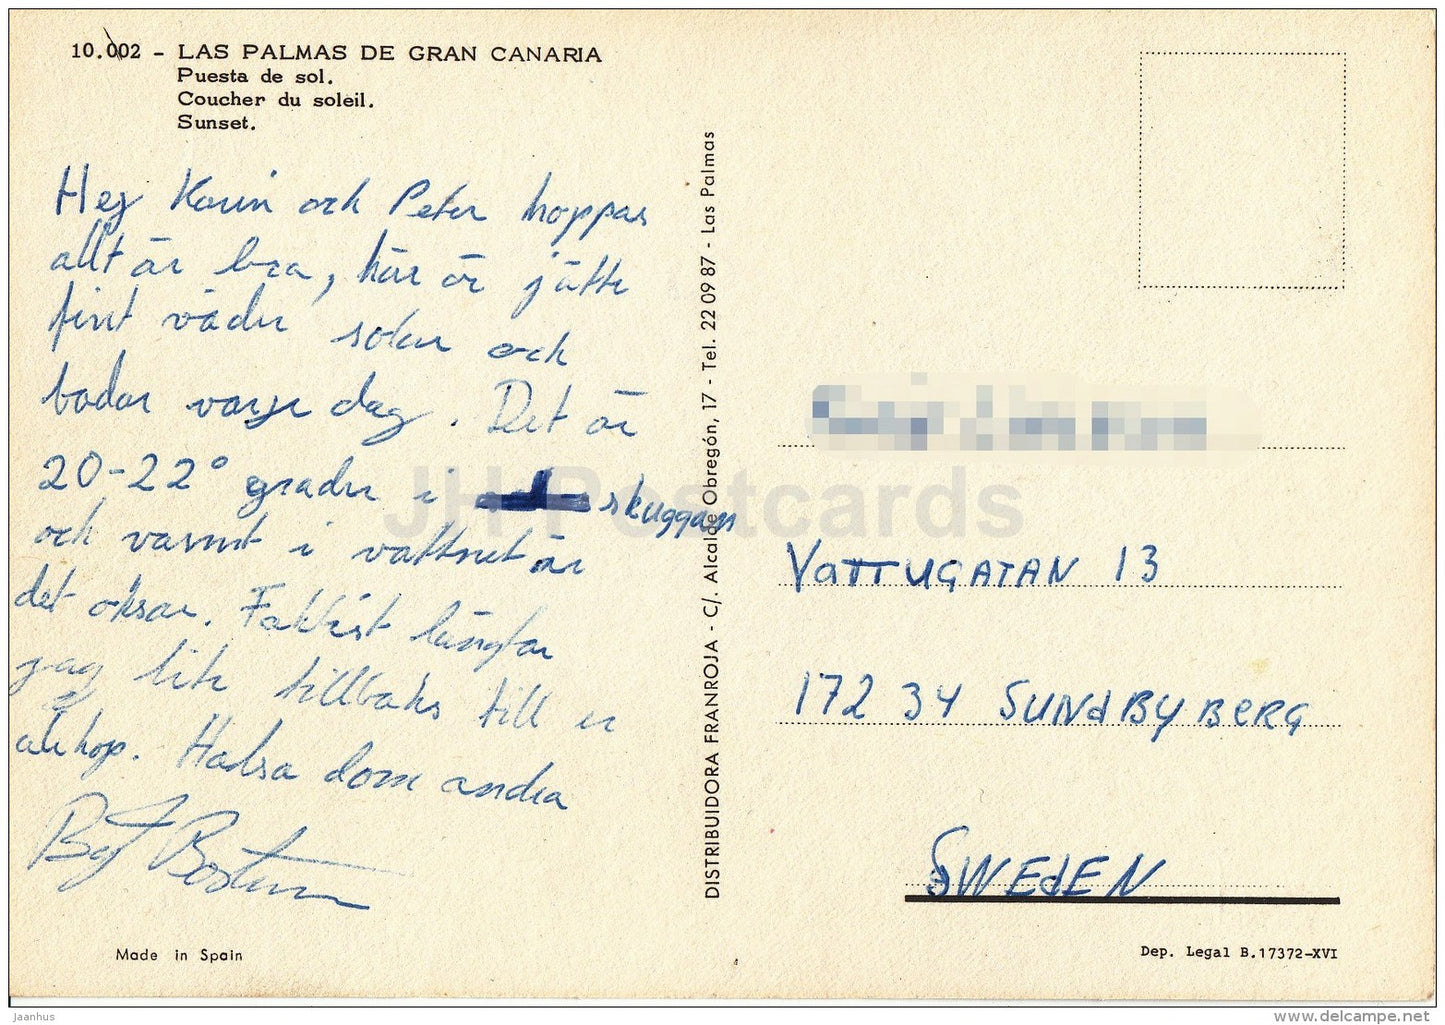 10.002 - LAS PALMAS DE GRAN CANARIA
Puesta de sol.
Coucher du soleil.
Sunset.
Hej Karin och Peter hoppas
allt är bra, här är jätte
fint väder solar och
badar varje dag. Det är
20-22° grader i skuggan
och varmt i vattnet är
det också. Faktist längtar
jag lite tillbaks till er
allihop. Hälsa dom andra
DISTRIBUIDORA FRANROJA - C/. Alcalde Obregón, 17 - Tel. 22 09 87 - Las Palmas
VATTUGATAN 13
172 34 SUNDBYBERG
SWEDEN
Made in Spain
Dep. Legal B.17372-XVI
JH Postcards
Jaanhus
delcampe.net